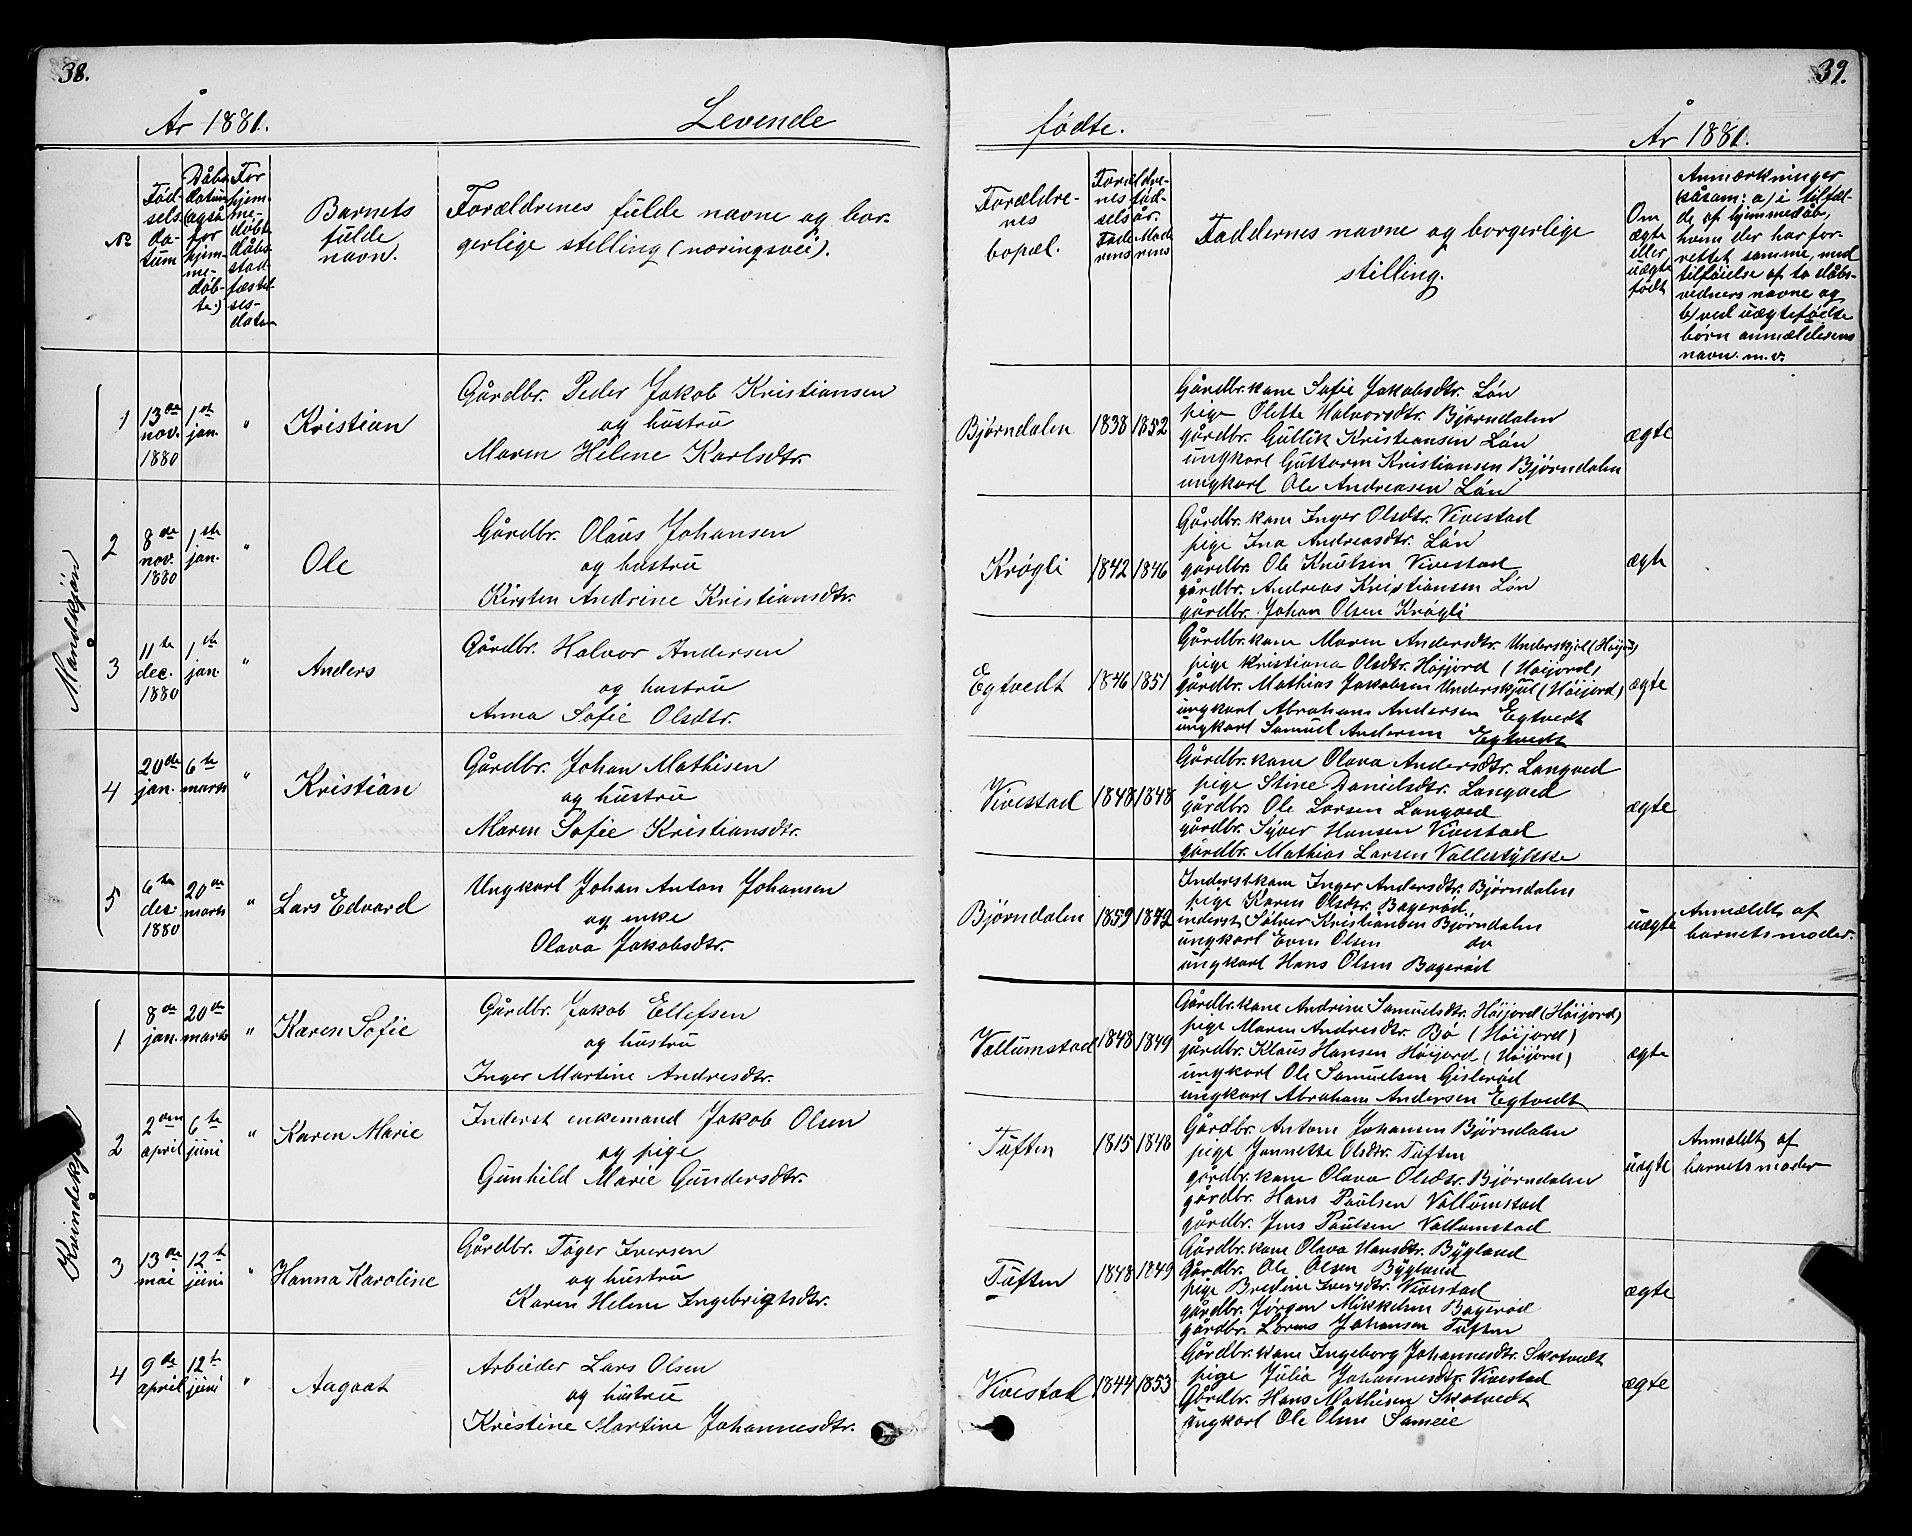 38.
År 1881.
Levende
No
Fødselsdatum
Dåbsdatum (også for hjemmedøbte.)
For hjemmedøbte dåbsstadfæstelsesdatum
Barnets fulde navn.
Forældrenes fulde navne og borgerlige stilling (næringsvei).
Mandkjøn
1 13de nov. 1880 1st jan. " Kristian
Gårdbr. Peder Jakob Kristiansen
og hustru
Maren Helene Karlsdtr.
2 8de nov. 1880 1ste jan. " Ole
Gårdbr. Olaus Johansen
og hustru
Kirsten Andrine Kristiansdtr.
3 11te dec. 1880 1st jan. " Anders
Gårdbr. Halvor Andersen
og hustru
Anna Sofie Olsdtr.
4 20de jan. 6te marts " Kristian
Gårdbr. Johan Mathisen
og hustru
Maren Sofie Kristiansdtr.
5 6te dec. 1880 20de marts " Lars Edvard
Ungkarl Johan Anton Johansen
og enke
Olava Jakobsdtr.
Kvindekjøn
1 8de jan. 20de marts " Karen Sofie
Gårdbr. Jakob Ellefsen
og hustru
Inger Martine Andresdtr.
2 2den april 6te juni " Karen Marie
Inderst enkemand Jakob Olsen
og pige
Gunhild Marie Gundersdtr.
3 13de mai 12t juni " Hanna Karoline
Gårdbr. Tøger Iversen
og hustru
Karen Helene Ingebrigtsdtr.
4 9de april 12t juni " Aagaat
Arbieder Lars Olsen
og hustru
Kristine Martine Johannesdtr.
39.
fødte.
År 1881.
Forældrenes bopæl.
Forældrenes fødselsår.
Faderens Moderens
Faddernes navne og borgerlige stilling.
Om ægte eller uægte født
Anmærkninger
(såsom: a) i tilfælde af hjemmedåb,
hvem der har forrettet samme, med
tilføielse af to dåbsvidners navne og
b) ved uægtefødte
børn anmelderens
navn. m.v.
Bjørndalen 1838 1852
Gårdbr.kone Sofie Jakobsdtr. Løn
pige Olette Halvorsdtr. Bjørndalen
gårdbr. Gullik Kristiansen Løn
ungkarl Guttorm Kristiansen Bjørndalen
ungkarl Ole Andreasen Løn
ægte
Krøgli 1842 1846
Gårdbr.kone Inger Olsdtr. Vivestad
pige Ina Andreasdtr. Løn
gårdbr. Ole Knutsen Vivestad
gårdbr. Andreas Kristiansen Løn
gårdbr. Johan Olsen Krøgli
ægte
Egtvedt 1846 1851
Gårdbr.kone Maren Andersdtr. Underskjul (Høijord)
pige Kristiana Olsdtr. Høijord (Høijord)
gårdbr. Mathias Jakobsen Underskjul (Høijord)
ungkarl Abraham Andersen Egtvedt
ungkarl Samuel Andersen Egtvedt
ægte
Vivestad 1848 1848
Gårdbr.kone Olava Andersdtr. Langved
pige Stine Danielsdtr. Langved
gårdbr. Ole Larsen Langved
gårdbr. Syver Hansen Vivestad
gårdbr. Mathias Larsen Vallestykke
ægte
Bjørndalen 1859 1842
Inderstkone Inger Andersdtr. Bjørndalen
pige Karen Olsdtr. Bagerød
inderst Sølver Kristiansen Bjørndalen
ungkarl Even Olsen do
ungkarl Hans Olsen Bagerød
uægte
Anmældt af
barnets moder.
Vallumstad 1848 1849
Gårdbr.kone Andrine Samuelsdtr. Høijord (Høijord)
pige Maren Andresdtr. Bø (Høijord)
gårdbr. Klaus Hansen Høijord (Høijord)
ungkarl Ole Samuelsen Gislerød
ungkarl Abraham Andersen Egtvedt
ægte
Tuften 1815 1848
Gårdbr. Anton Johansen Bjørndalen
pige Jannette Olsdtr. Tuften
gårdbr.kone Olava Olsdtr. Bjørndalen
gårdbr. Hans Paulsen Vallumstad
gårdbr. Jens Paulsen Vallumstad
uægte
Anmældt af
barnets moder
Tuften 1848 1849
Gårdbr.kone Olava Hansdtr. Bygland
Gårdbr. Ole Olsen Bygland
pige Bredine Iversdtr. Vivestad
gårdbr. Jørgen Mikkelsen Bagerød
gårdbr. Lorens Johansen Tuften
ægte
Vivestad 1844 1853
Gårdbr.kone Ingeborg Johannesdtr. Skotvedt
pige Julia Johannesdtr. Vivestad
Gårdbr. Hans Mathisen Skotvedt
ungkarl Ole Olsen Sameie
ægte